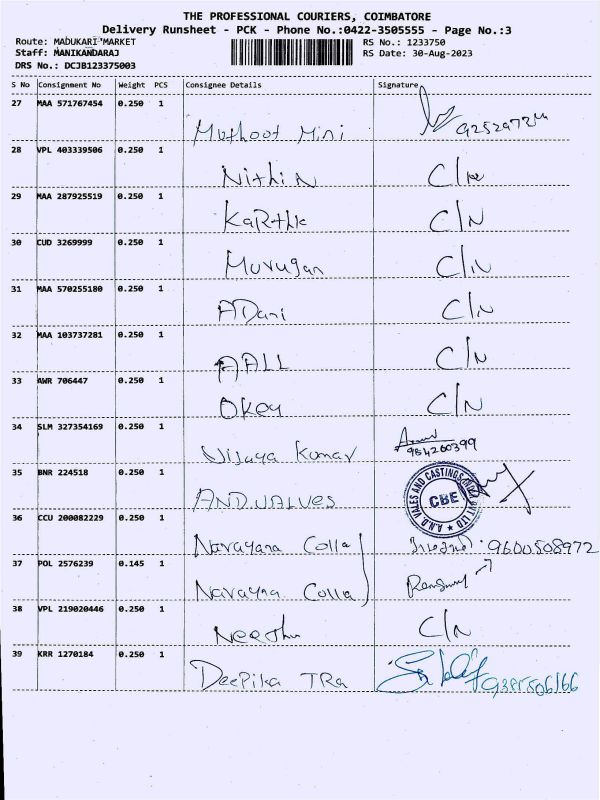 THE PROFESSIONAL COURIERS, COIMBATORE
Delivery Runsheet - PCK - Phone No.:0422-3505555 - Page No.:3
Route: MADUKARI MARKET RS No.: 1233750
Staff: MANIKANDARAJ RS Date: 30-Aug-2023
DRS No.: DCJB123375003
S No Consignment No Weight PCS Consignee Details Signature
27 MAA 571767454 0.250 1
Muthoot Mini
28 VPL 403339506 0.250 1
Nithin
29 MAA 287925519 0.250 1
Karthk C/N
30 CUD 3269999 0.250 1
Murugan C/N
31 MAA 570255180 0.250 1
ADani C/N
32 MAA 103737281 0.250 1
AALL C/N
33 AWR 706447 0.250 1
Okey C/N
34 SLM 327354169 0.250 1
Vijaya Kumar 984260399
35 BNR 224518 0.250 1
AND.VALVES CBE
36 CCU 200082229 0.250 1
Narayana Colla 9600508972
37 POL 2576239 0.145 1
Narayna Colla
38 VPL 219020446 0.250 1
Neethu C/N
39 KRR 1270184 0.250 1
Deepika TRa